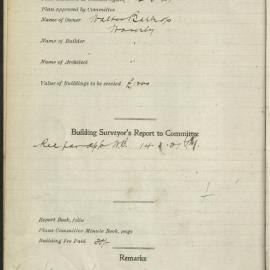 Plan approved by Committee
Name of Owner Walter
Waverly
Name of Builder "
Name of Architect "
Value of Buildings to be erected £
Building Surveyor's Report to Committee
Rec for app
Report Book, folio
Plans Committee Minute Book, page
Building Fee Paid 20/-
Remarks